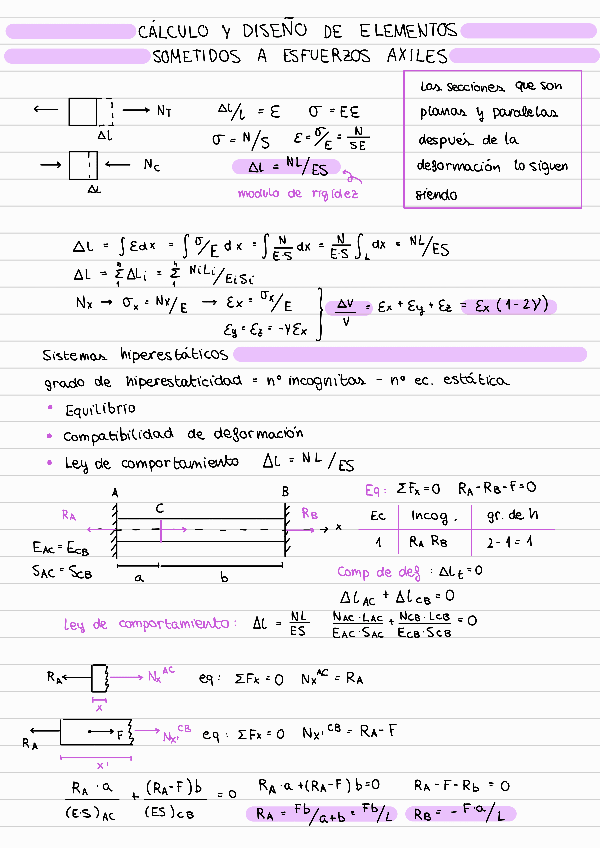 CÁLCULO Y DISEÑO DE ELEMENTOS
SOMETIDOS A ESFUERZOS AXILES
Las secciones que son
planas y paralelas
después de la
deformación lo siguen
siendo
NT
ΔL
ΔL/L = ε σ = Eε
σ = N/S ε = σ/E = N/SE
NC
ΔL
ΔL = NL/ES
modulo de rigidez
ΔL = ∫ εdx = ∫ σ/E dx = ∫ N/E·S dx = N/E·S ∫L dx = NL/ES
ΔL = Σ ΔLi = Σ NiLi/EiSi
Nx → σx = Nx/E → εx = σx/E
εy = εz = -νεx
ΔV/V = εx + εy + εz = εx (1-2ν)
Sistemas hiperestáticos
grado de hiperestaticidad = nº incognitas - nº ec. estática
• Equilibrio
• Compatibilidad de deformación
• Ley de comportamiento ΔL = NL/ES
A C B
RA RB x
EAC = ECB
SAC = SCB
a b
Eq: ΣFx = 0 RA - RB - F = 0
Ec Incog. gr. de h
1 RA RB 2-1 = 1
Comp de def : ΔLt = 0
ΔLAC + ΔLCB = 0
Ley de comportamiento: ΔL = NL/ES NAC·LAC/EAC·SAC + NCB·LCB/ECB·SCB = 0
RA NxAC eq: ΣFx = 0 NxAC = RA
x
RA F Nx'CB eq: ΣFx = 0 Nx'CB = RA - F
x'
RA·a/(E·S)AC + (RA-F)b/(ES)CB = 0 RA·a + (RA-F)b = 0 RA - F - Rb = 0
RA = Fb/a+b = Fb/L RB = - F·a/L